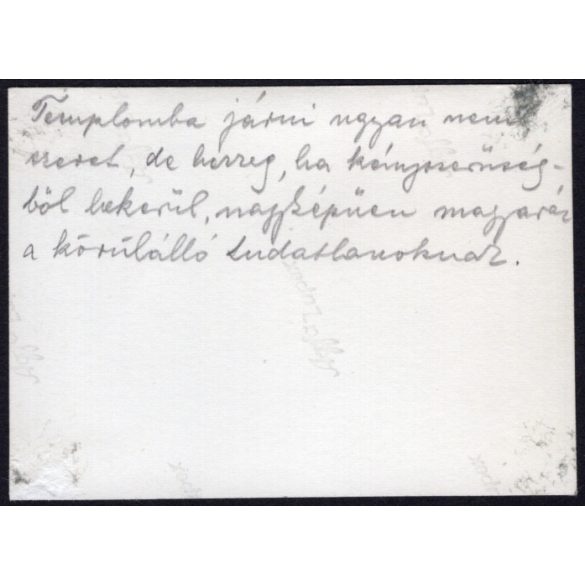 Templomba járni ugyan nem
szeret, de herzeg, ha kényszerűség-
ből bekerül, nagyképűen magyaráz
a körülálló tudatlanoknak.